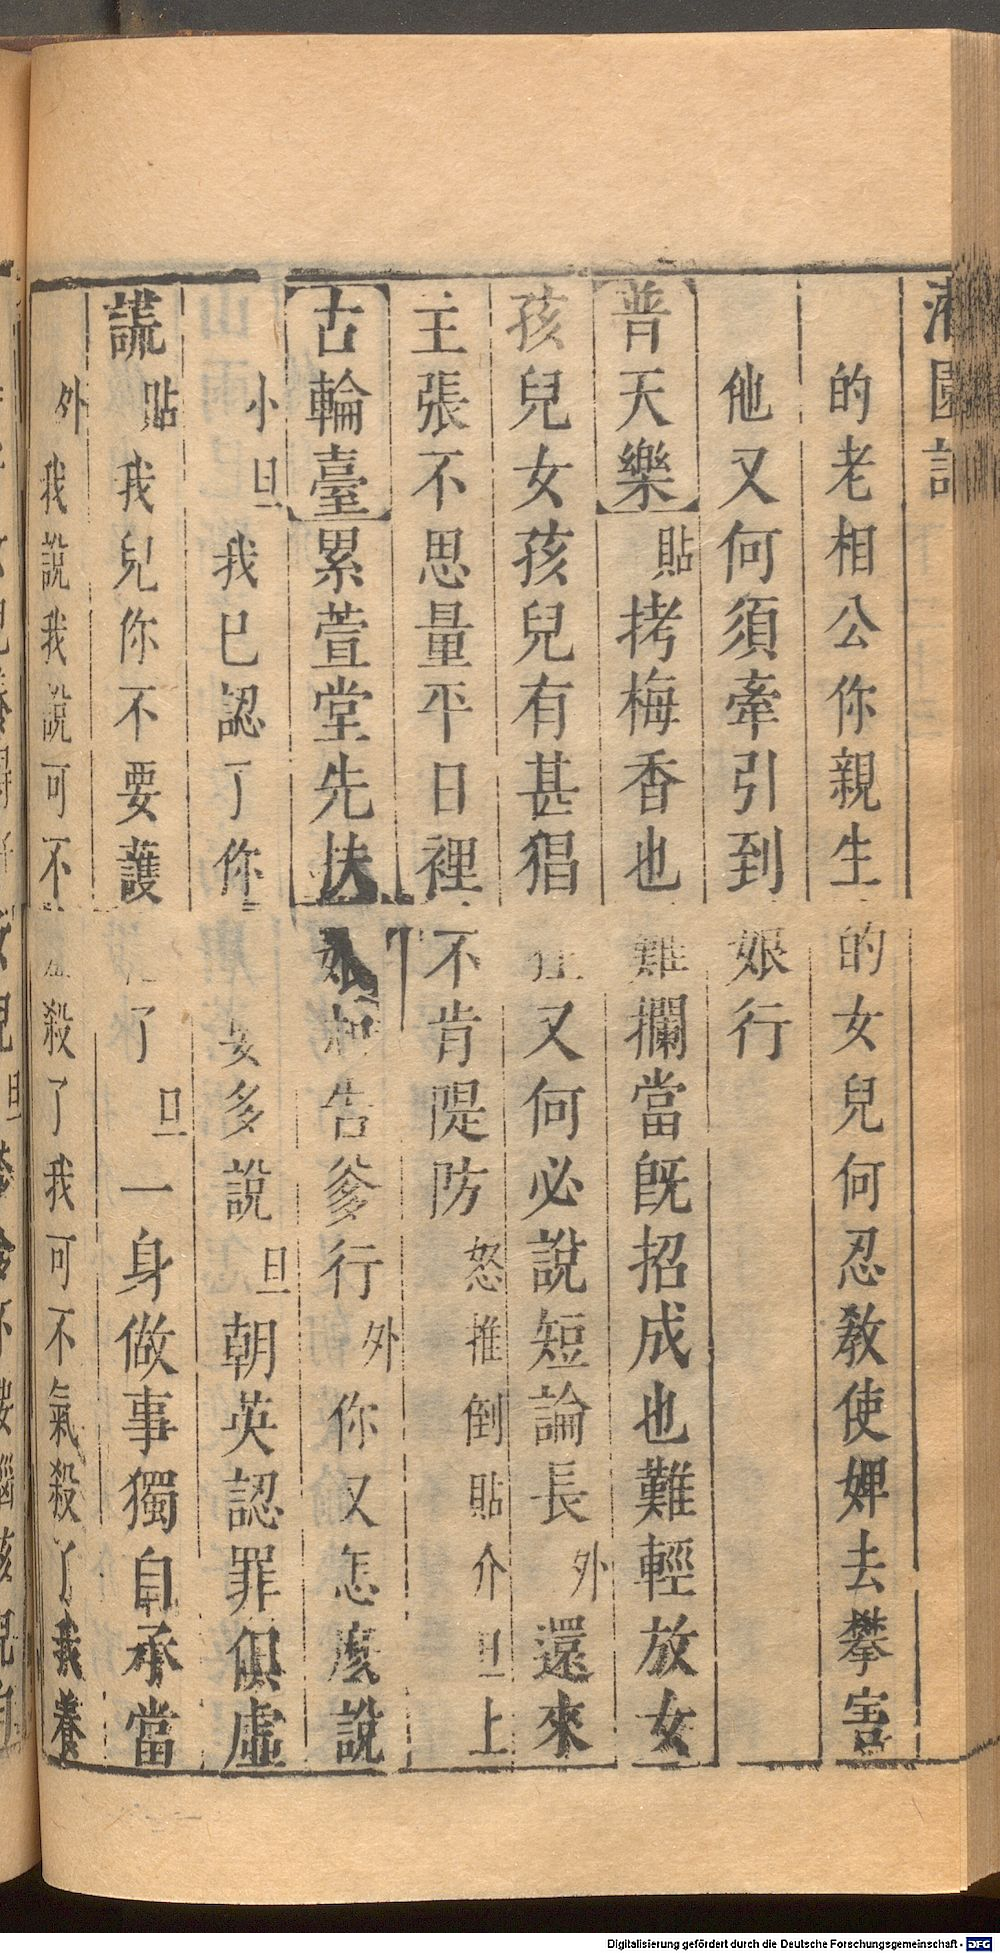 園記
的老相公你親生的女兒何忍教使婢去攀害
他又何須牽引到娘行
普天樂貼拷梅香也難攔當既招成也難輕放女
孩兒女孩兒有甚猖狂又何必說短論長外還來
主張不思量平日裡不肯隄防怒推倒貼介旦上
古輪臺累萱堂先扶娘告爹行外你又怎麼說
小旦我已認了你多說旦朝英認罪俱虛
謊貼我兒你不要護了旦一身做事獨自承當
外我說我說可不殺了我可不氣殺了我養
Digitalisierung gefördert durch die Deutsche Forschungsgemeinschaft - DFG